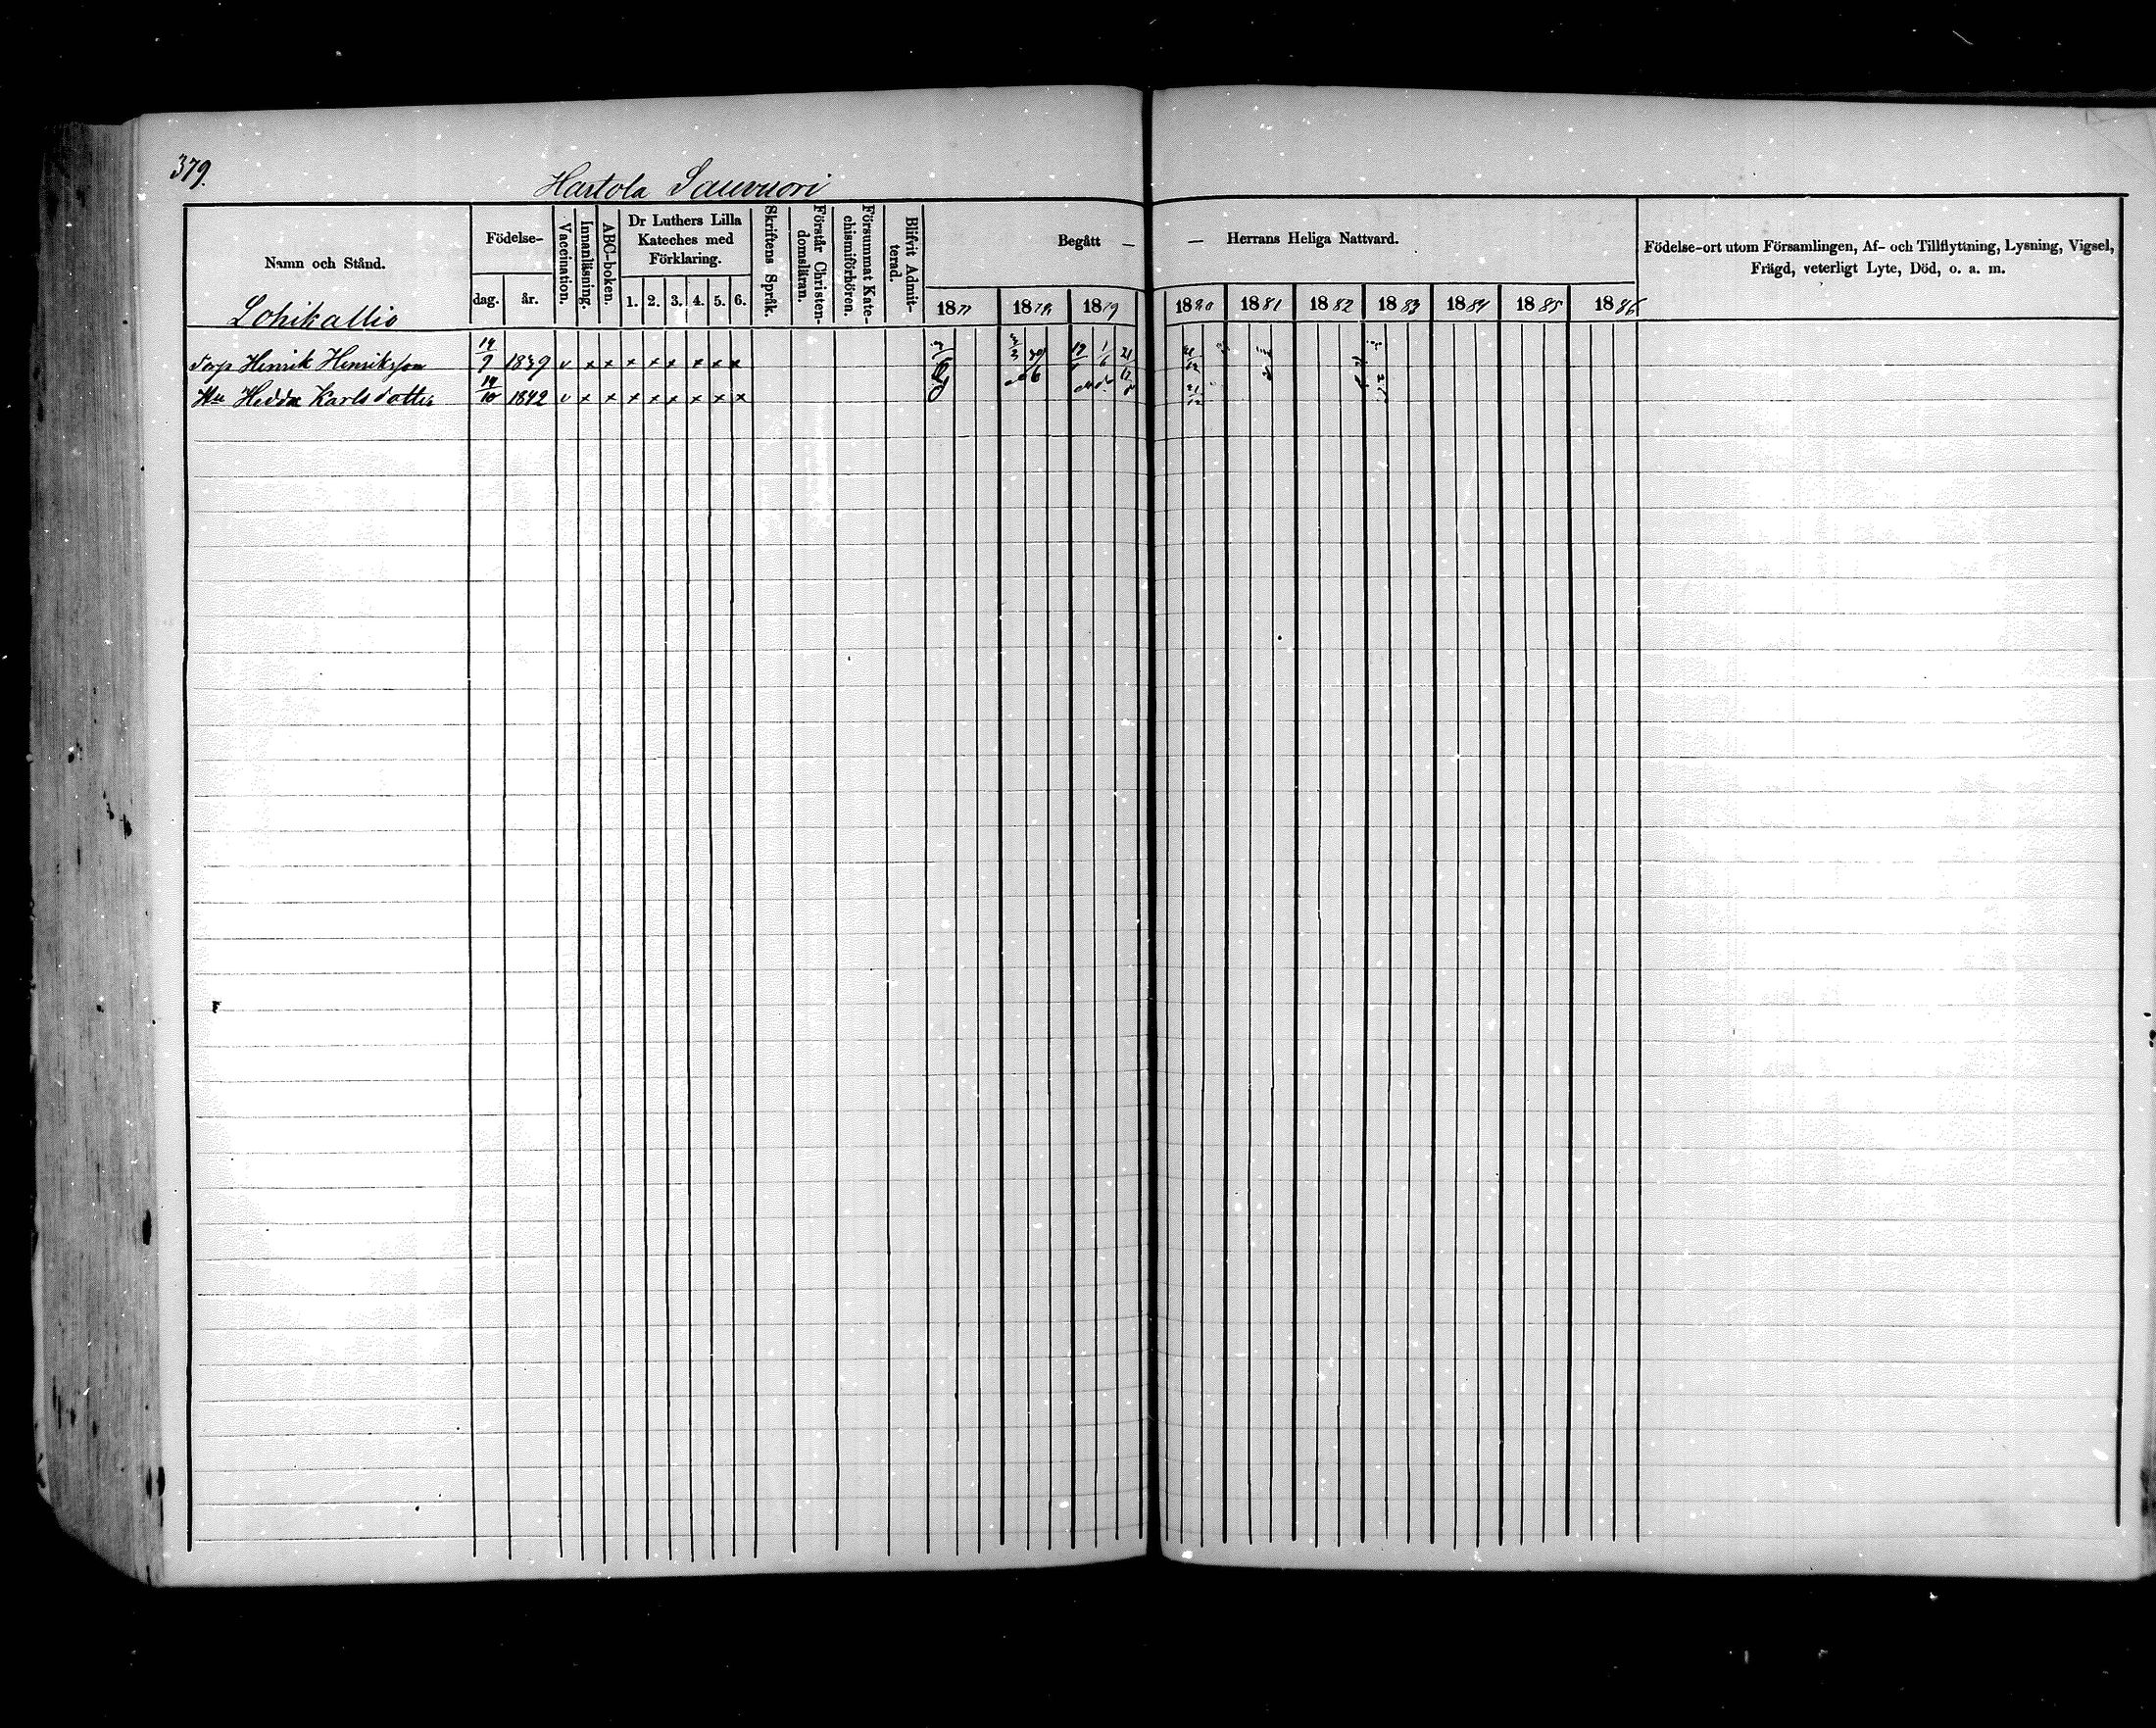 379.
Hartola Sauvuori
Namn och Stånd.
Födelse-
dag. år.
Vaccination.
Innanläsning.
ABC-boken.
Dr Luthers Lilla
Kateches med
Förklaring.
1. 2. 3. 4. 5. 6.
Skriftens Språk.
Förstår Christen-
domsläran.
Försummat Kate-
chismiförhören.
Blifvit Admit-
terad.
Begått — — Herrans Heliga Nattvard.
1877 1878 1879 1880 1881 1882 1883 1884 1885 1886
Födelse-ort utom Församlingen, Af- och Tillflyttning, Lysning, Vigsel,
Frägd, veterligt Lyte, Död, o. a. m.
Lohikallio
Torp Henrik Henriksson 14/9 1839 v x x x x x x x x
Hu Hedda Karlsdotter 14/10 1842 v x x x x x x x x